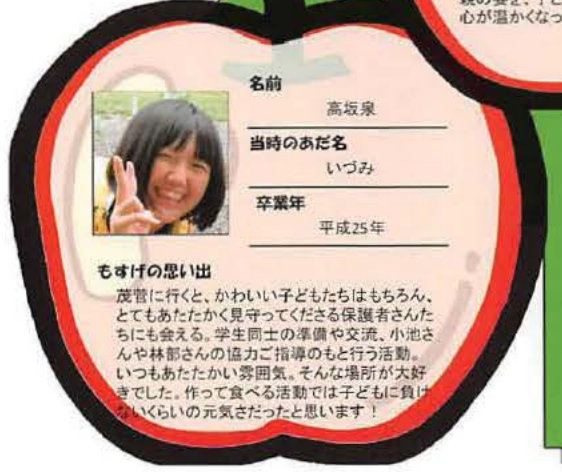 心が温かくなっ
名前
高坂泉
当時のあだ名
いづみ
卒業年
平成25年
もすげの思い出
茂菅に行くと、かわいい子どもたちはもちろん、
とてもあたたかく見守ってくださる保護者さんた
ちにも会える。学生同士の準備や交流、小池さ
んや林部さんの協力ご指導のもと行う活動。
いつもあたたかい雰囲気。そんな場所が大好
きでした。作って食べる活動では子どもに負け
ないくらいの元気さだったと思います！